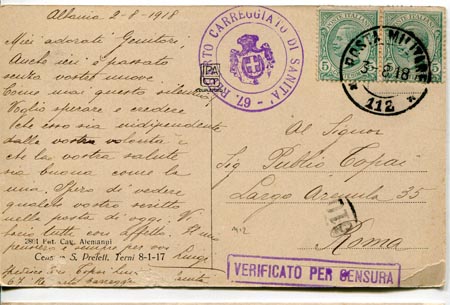 Albania 2-8-1918
Miei adorati Genitori.
Anche ieri è passato
senza vostre nuove
Come mai questo silenzio?
Voglio sperare e credere
che esso sia indipendente
dalla vostra volontà e
che la vostra salute
sia buona come la
mia. Spero di vedere
qualche vostro scritto
nella posta di oggi. Vi
bacio tutti con affetto. Il mio
pensiero è sempre per voi
Luigi
2801 Fot. Cav. Alemanni
Censura S. Prefett. Terni 8-1-17
67
REPARTO CARREGGIATO DI SANITA' - 67
POSTE ITALIANE
5
5
POSTA MILITARE
3 8 18
112
Al Signor
Sig Publio Copai
Largo Arenula 35
Roma
912
VERIFICATO PER CENSURA